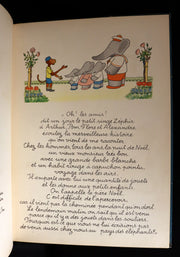 "Oh! les amis!
dit un jour le petit singe Zéphir
à Arthur, Pom, Flore et Alexandre,
écoutez la merveilleuse histoire
qu'on vient de me raconter.
Chez les hommes, tous les ans, la nuit de Noël,
un vieux monsieur très bon
avec une grande barbe blanche
et un habit rouge à capuchon pointu,
voyage dans les airs.
Il emporte avec lui une quantité de jouets
et les donne aux petits enfants.
Ils l'appellent le père Noël.
C'est difficile de l'apercevoir,
car il vient par la cheminée pendant qu'on dort.
Le lendemain matin on sait qu'il est venu
parce qu'il y a des jouets dans les souliers.
Pourquoi est-ce que nous ne lui écririons pas
de venir aussi chez nous au pays des éléphants?